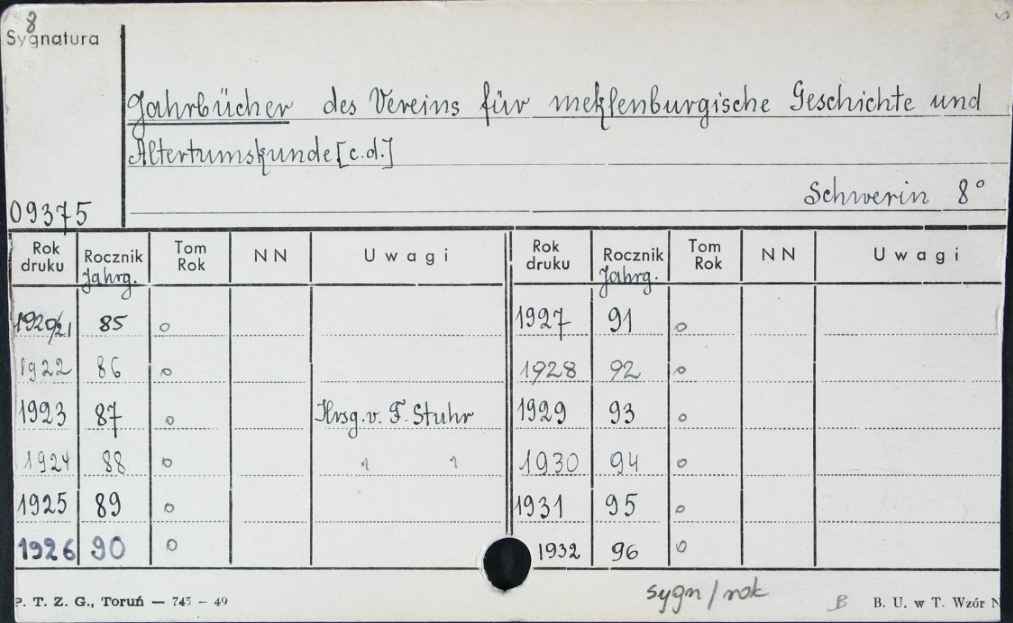 8
Sygnatura
Jahrbücher des Vereins für meklenburgische Geschichte und
Altertumskunde [c.d.]
Schwerin 8°
09375
Rok druku | Rocznik Jahrg. | Tom Rok | NN | Uwagi | Rok druku | Rocznik Jahrg. | Tom Rok | NN | Uwagi
1920/21 85 o 1927 91 o
1922 86 o 1928 92 o
1923 87 o Hrsg. v. F. Stuhr 1929 93 o
1924 88 o " " 1930 94 o
1925 89 o 1931 95 o
1926 90 o 1932 96 o
sygn/rok
P. T. Z. G., Toruń — 745 - 49 B B. U. w T. Wzór N